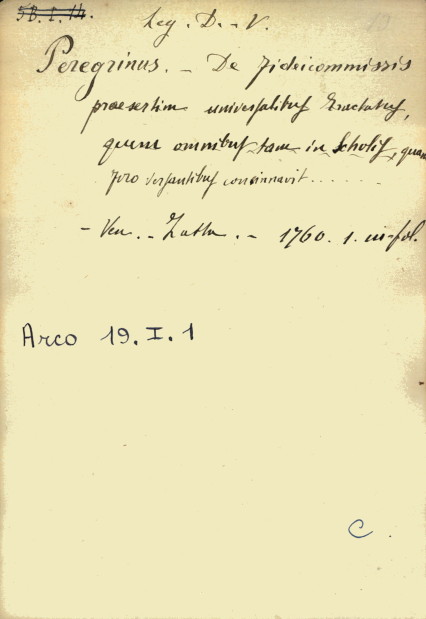 5B.I.14.
Leg. D. - V.
Peregrinus. - De fideicommissis
praesertim universalibus Tractatus,
quem omnibus tam in Scholis, quam
foro versantibus concinnavit . . . . . .
- Ven. - Zatta. - 1760. 1. in-fol.
Arco 19.I.1
C.